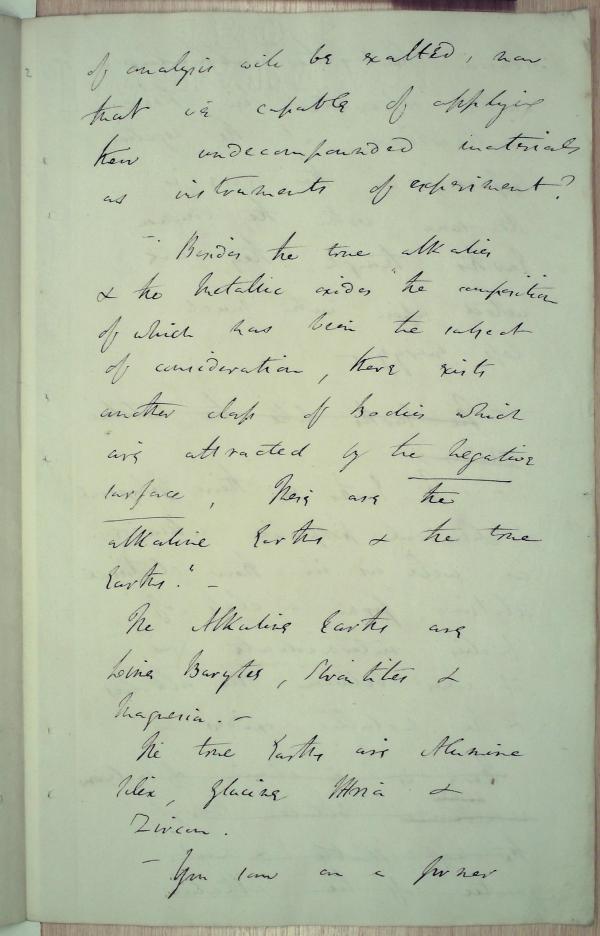 of analysis will be exalted, now
that we capable of applying
these undecompounded materials
as instruments of experiment?
— Besides the true alkalies
& the Metallic oxides the composition
of which has been the subject
of consideration, there exists
another class of Bodies which
are attracted by the negative
surface, These are the
alkaline Earths & the true
Earths." —
The Alkaline Earths are
Lime Barytes, Strontites &
Magnesia. —
The true Earths are Alumine
Silex, Glucine Ittria &
Zircon.
— You saw on a former